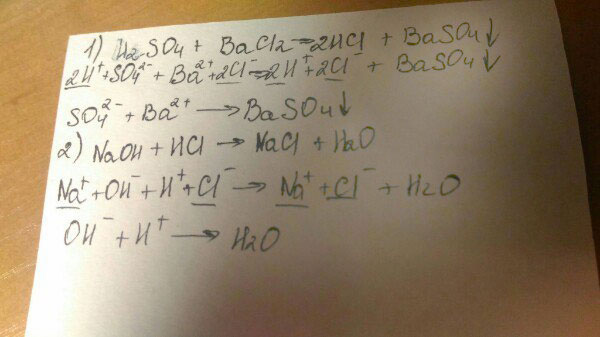 1) H₂SO₄ + BaCl₂ = 2HCl + BaSO₄↓
2H⁺ + SO₄²⁻ + Ba²⁺ + 2Cl⁻ = 2H⁺ + 2Cl⁻ + BaSO₄↓
SO₄²⁻ + Ba²⁺ → BaSO₄↓
2) NaOH + HCl → NaCl + H₂O
Na⁺ + OH⁻ + H⁺ + Cl⁻ → Na⁺ + Cl⁻ + H₂O
OH⁻ + H⁺ → H₂O